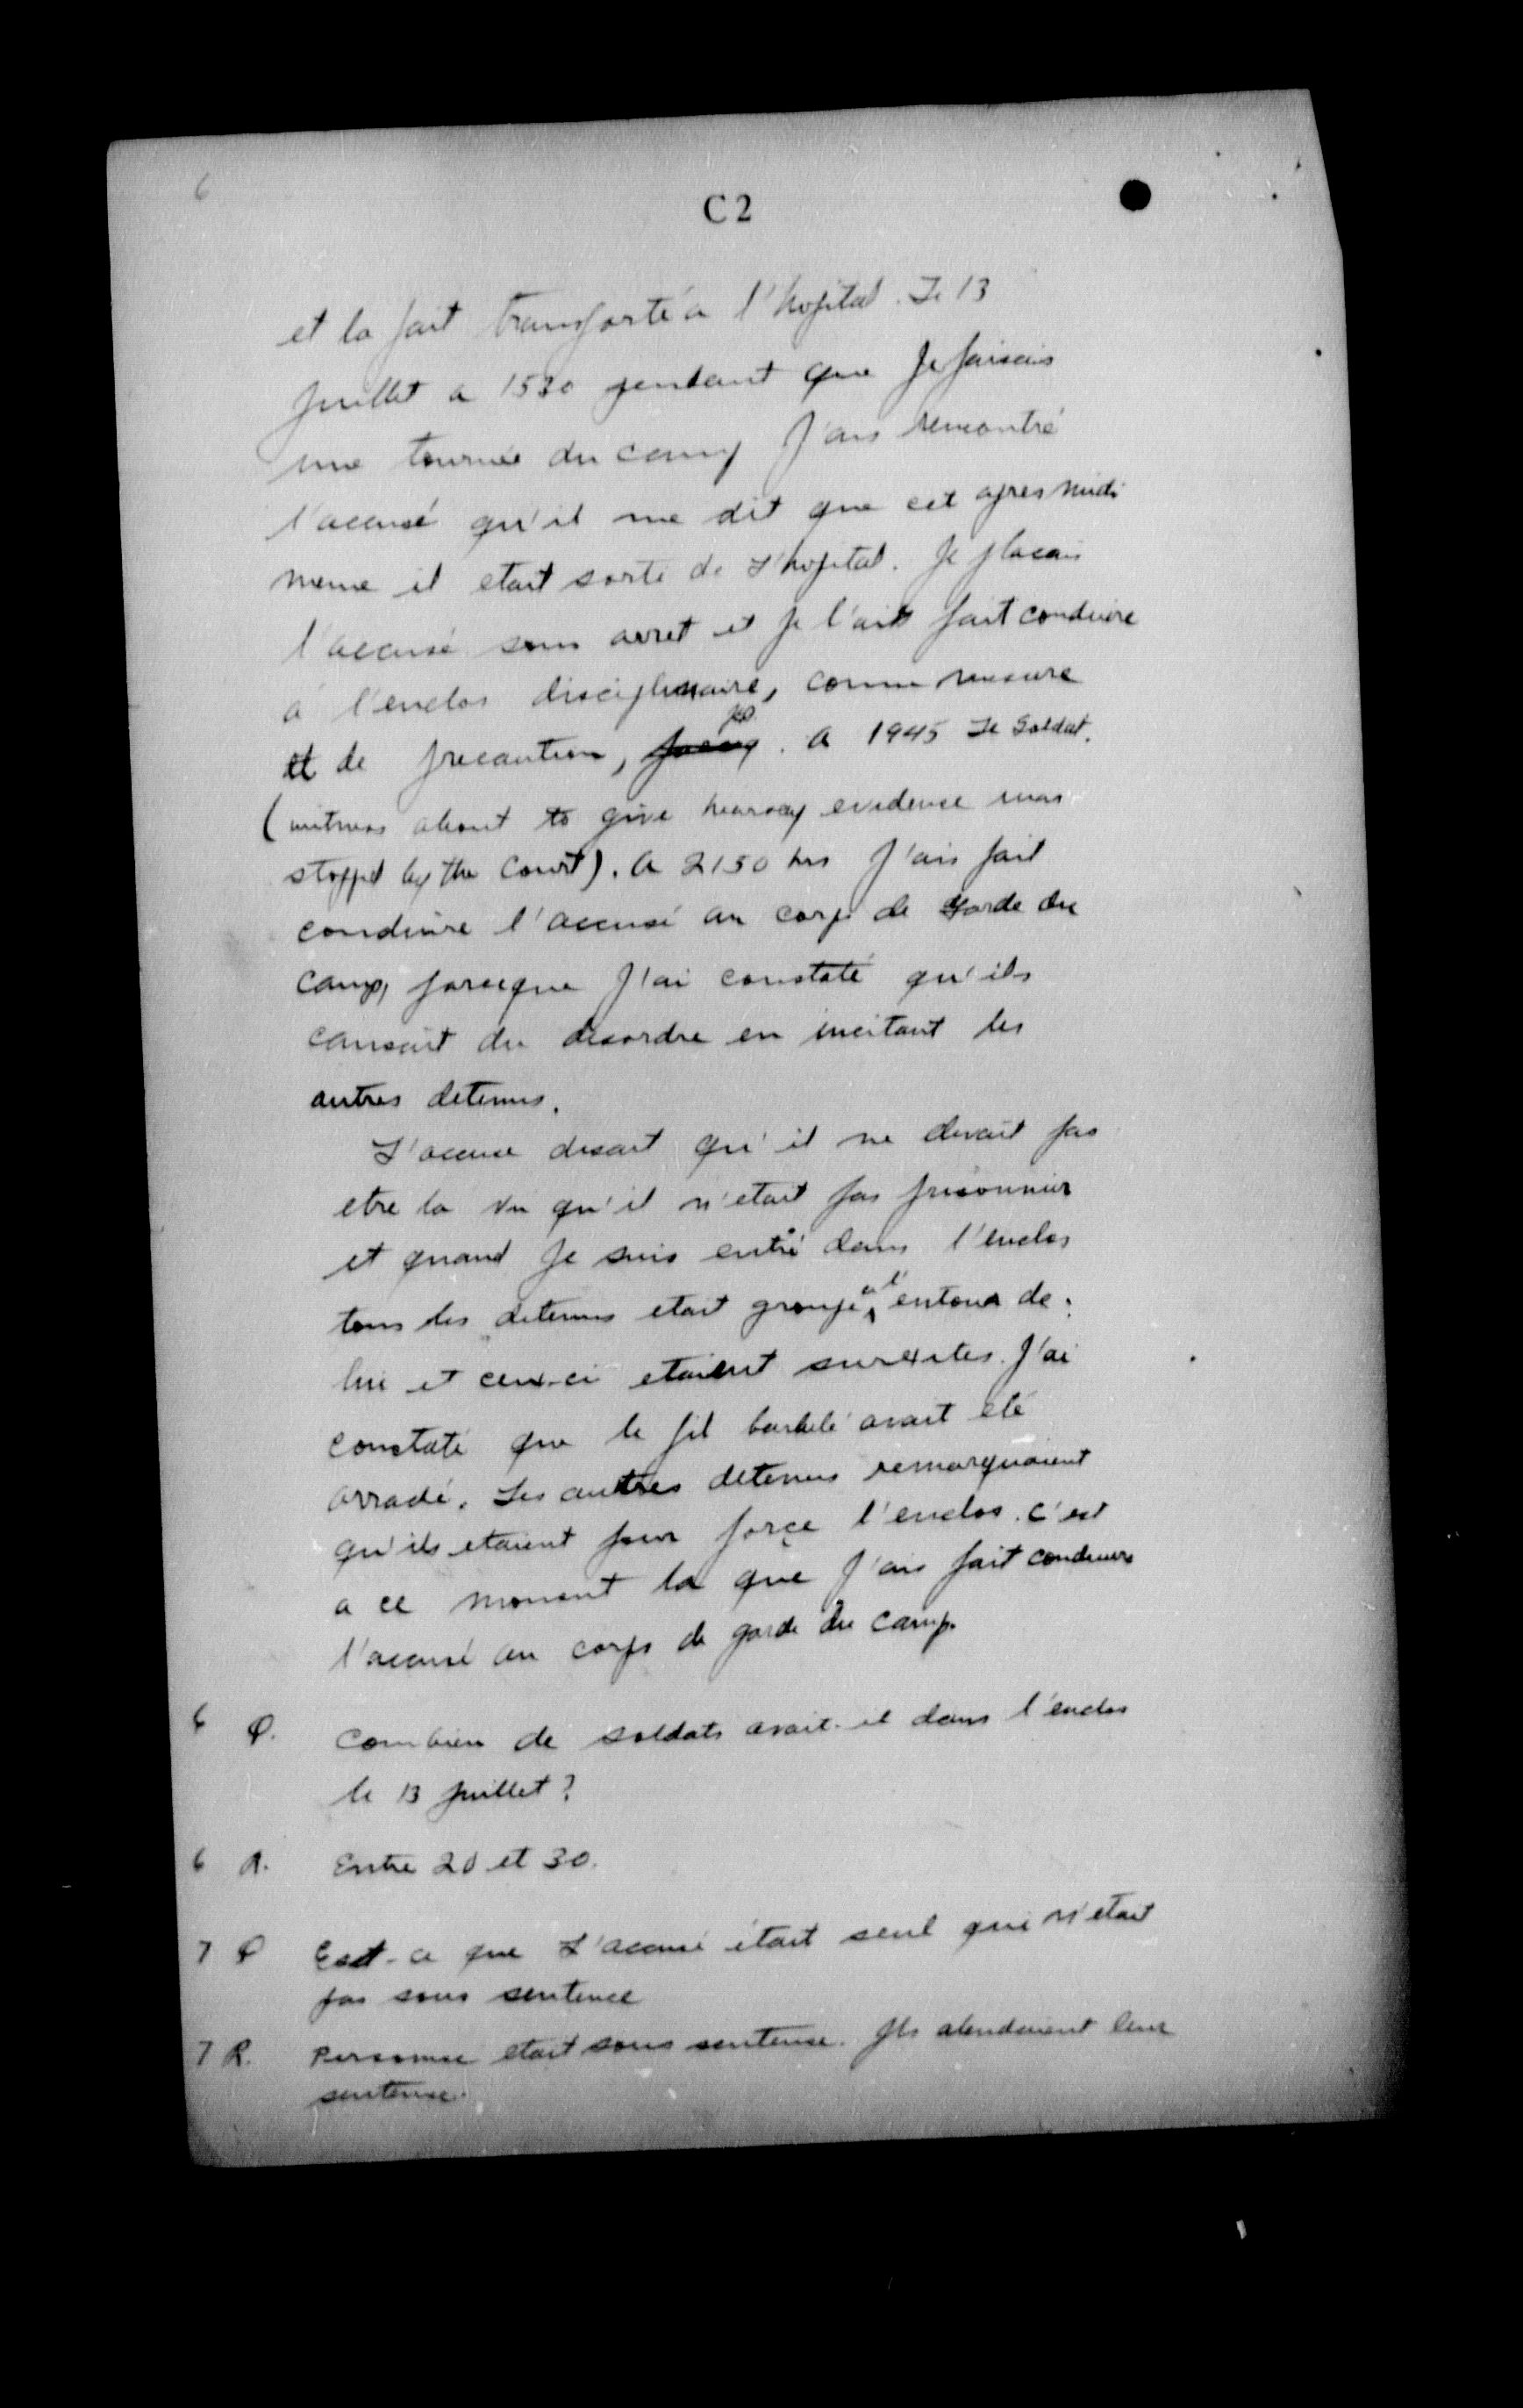 6
C2
et la fait transporté a l'hopital. Le 13
Juillet a 1530 pendant que Je faisais
une tournée du camp J'ais rencontré
l'accusé qu'il me dit que cet apres midi
meme il etait sorti de L'hopital. Je placais
l'accusé sous arret et Je l'ais fait conduire
à l'enclos disciplinaire, comme mesure
et de precaution, . A 1945 Le Soldat.
(witness about to give hearsay evidence was
stopped by the Court). A 2150 hrs J'ais fait
conduire l'accusé au corps de garde du
camp, parceque J'ai constaté qu'ils
causait du desordre en incitant les
autres detenus.
L'accuse disait qu'il ne devait pas
etre la vu qu'il n'etait pas prisonnier
et quand Je suis entré dans l'enclos
tous les detenus etait groupé a l'entour de
lui et ceux-ci etaient surexités. J'ai
constaté que le fil barbelé avait été
arraché. Les autres detenus remarquaient
qu'ils etaient pour force l'enclos. C'est
a ce moment la que J'ais fait conduire
l'accusé au corps de garde du camp.
6 Q. Combien de soldats avait-il dans l'enclos
le 13 Juillet?
6 R. Entre 20 et 30.
7 Q Est-ce que L'accusé était seul qui n'était
pas sous sentence
7 R. Personne etait sous sentence. Ils atendaient leur
sentence.